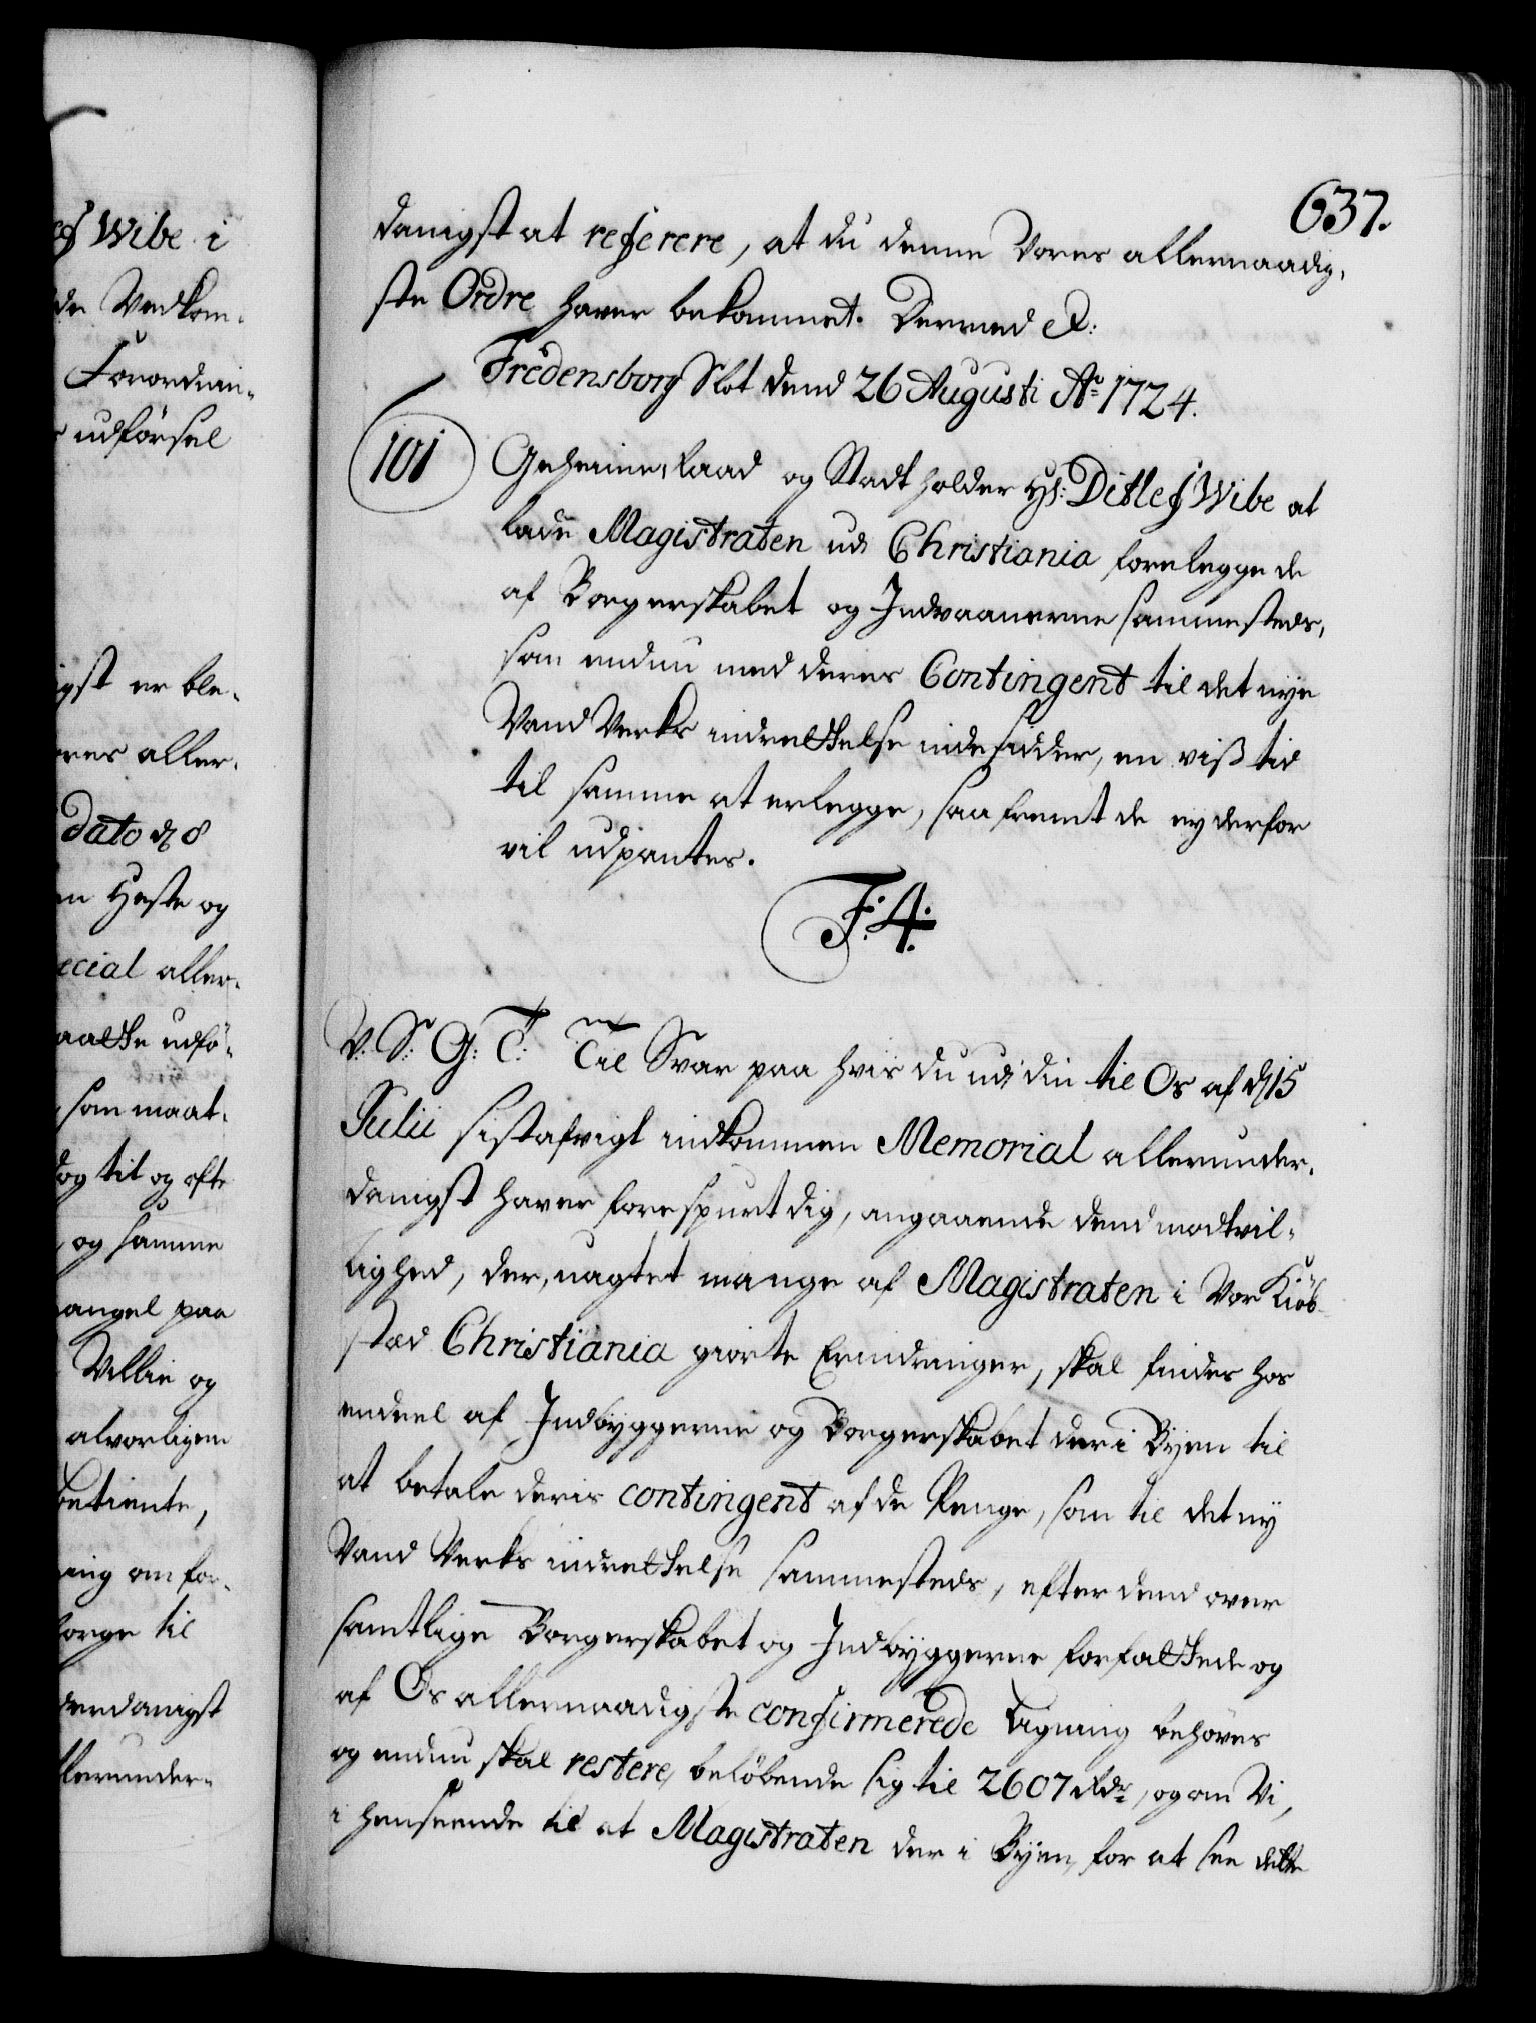 637.
danigst at referere, at du denne Vores allernaadig-
ste Ordre haver bekommet. Dermed &:
Fredensborg Slot dend 26 Augusti Ao 1724.
101
Geheime-Raad og Stadtholder Hr: Ditlef Wibe at
lade Magistraten udi Christiania forelegge de
af Borgerskabet og Indvaanerne sammesteds,
som endnu med deres Contingent til det nye
Vand Verks indrettelse indesidder, en viß tid
til samme at erlegge, saafremt de ey derfor
vil udpantes.
F: 4.
V: S: G: T: Til Svar paa hvis du udi din til Os af d 15
Julii sistafvigt indkommen Memorial allerunder-
danigst haver forespurt dig, angaaende dend modtvil-
lighed, der, uagtet mange af Magistraten i Vor Kiöb-
stad Christiania giorte Erindringer, skal findes hos
endeel af Indbyggerne og Borgerskabet der i Byen til
at betale deris contingent af de Penge, som til det ny
Vand Verks indrettelse sammesteds, efter dend over
samtlige Borgerskabet og Indbyggerne forfattede og
af Os allernaadigste confirmerede Ligning behöves
og endnu skal restere, belöbende sig til 2607 Rdr, og om Vi,
i henseende til at Magistraten der i Byen, for at see dette
Wibe i
Vedkom-
Forordnin-
udförsel
er ble-
aller-
dato d 8
Heste og
aller-
udfö-
som maat-
og til og efte
og samme
paa
Villie og
alvorligen
betiente,
om for-
til